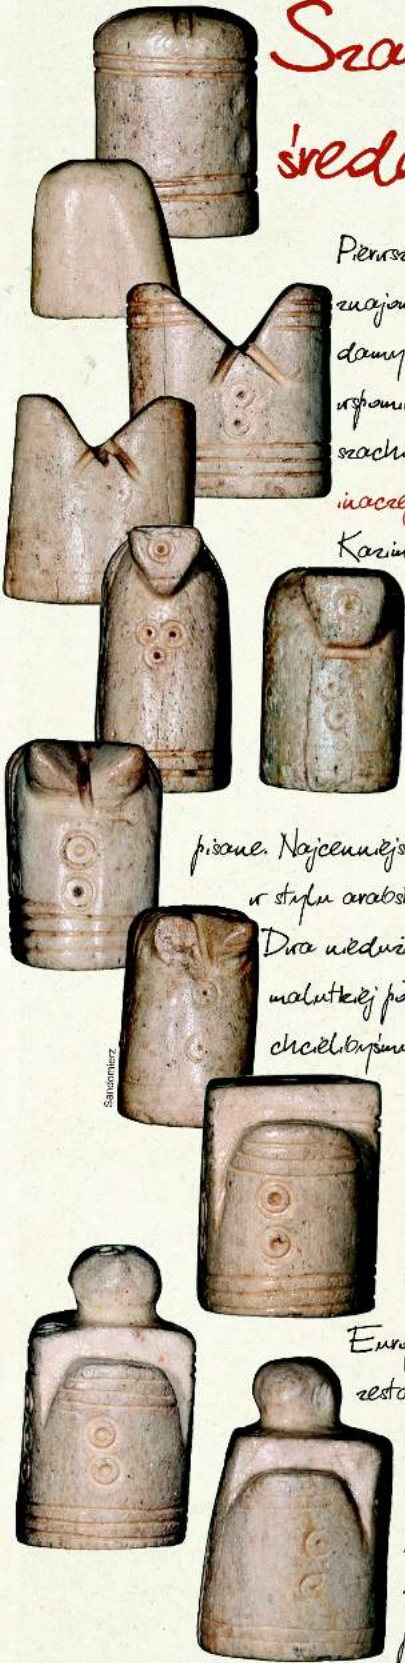 Sza
śred
Pierwsz
znajom
damy
wspomi
szach
inacze
Kazim
pisane. Najcenniejs
w stylu arabs
Dwa nieduż
malutkiej po
chcielibyśmy
Sandomierz
Euro
zesta